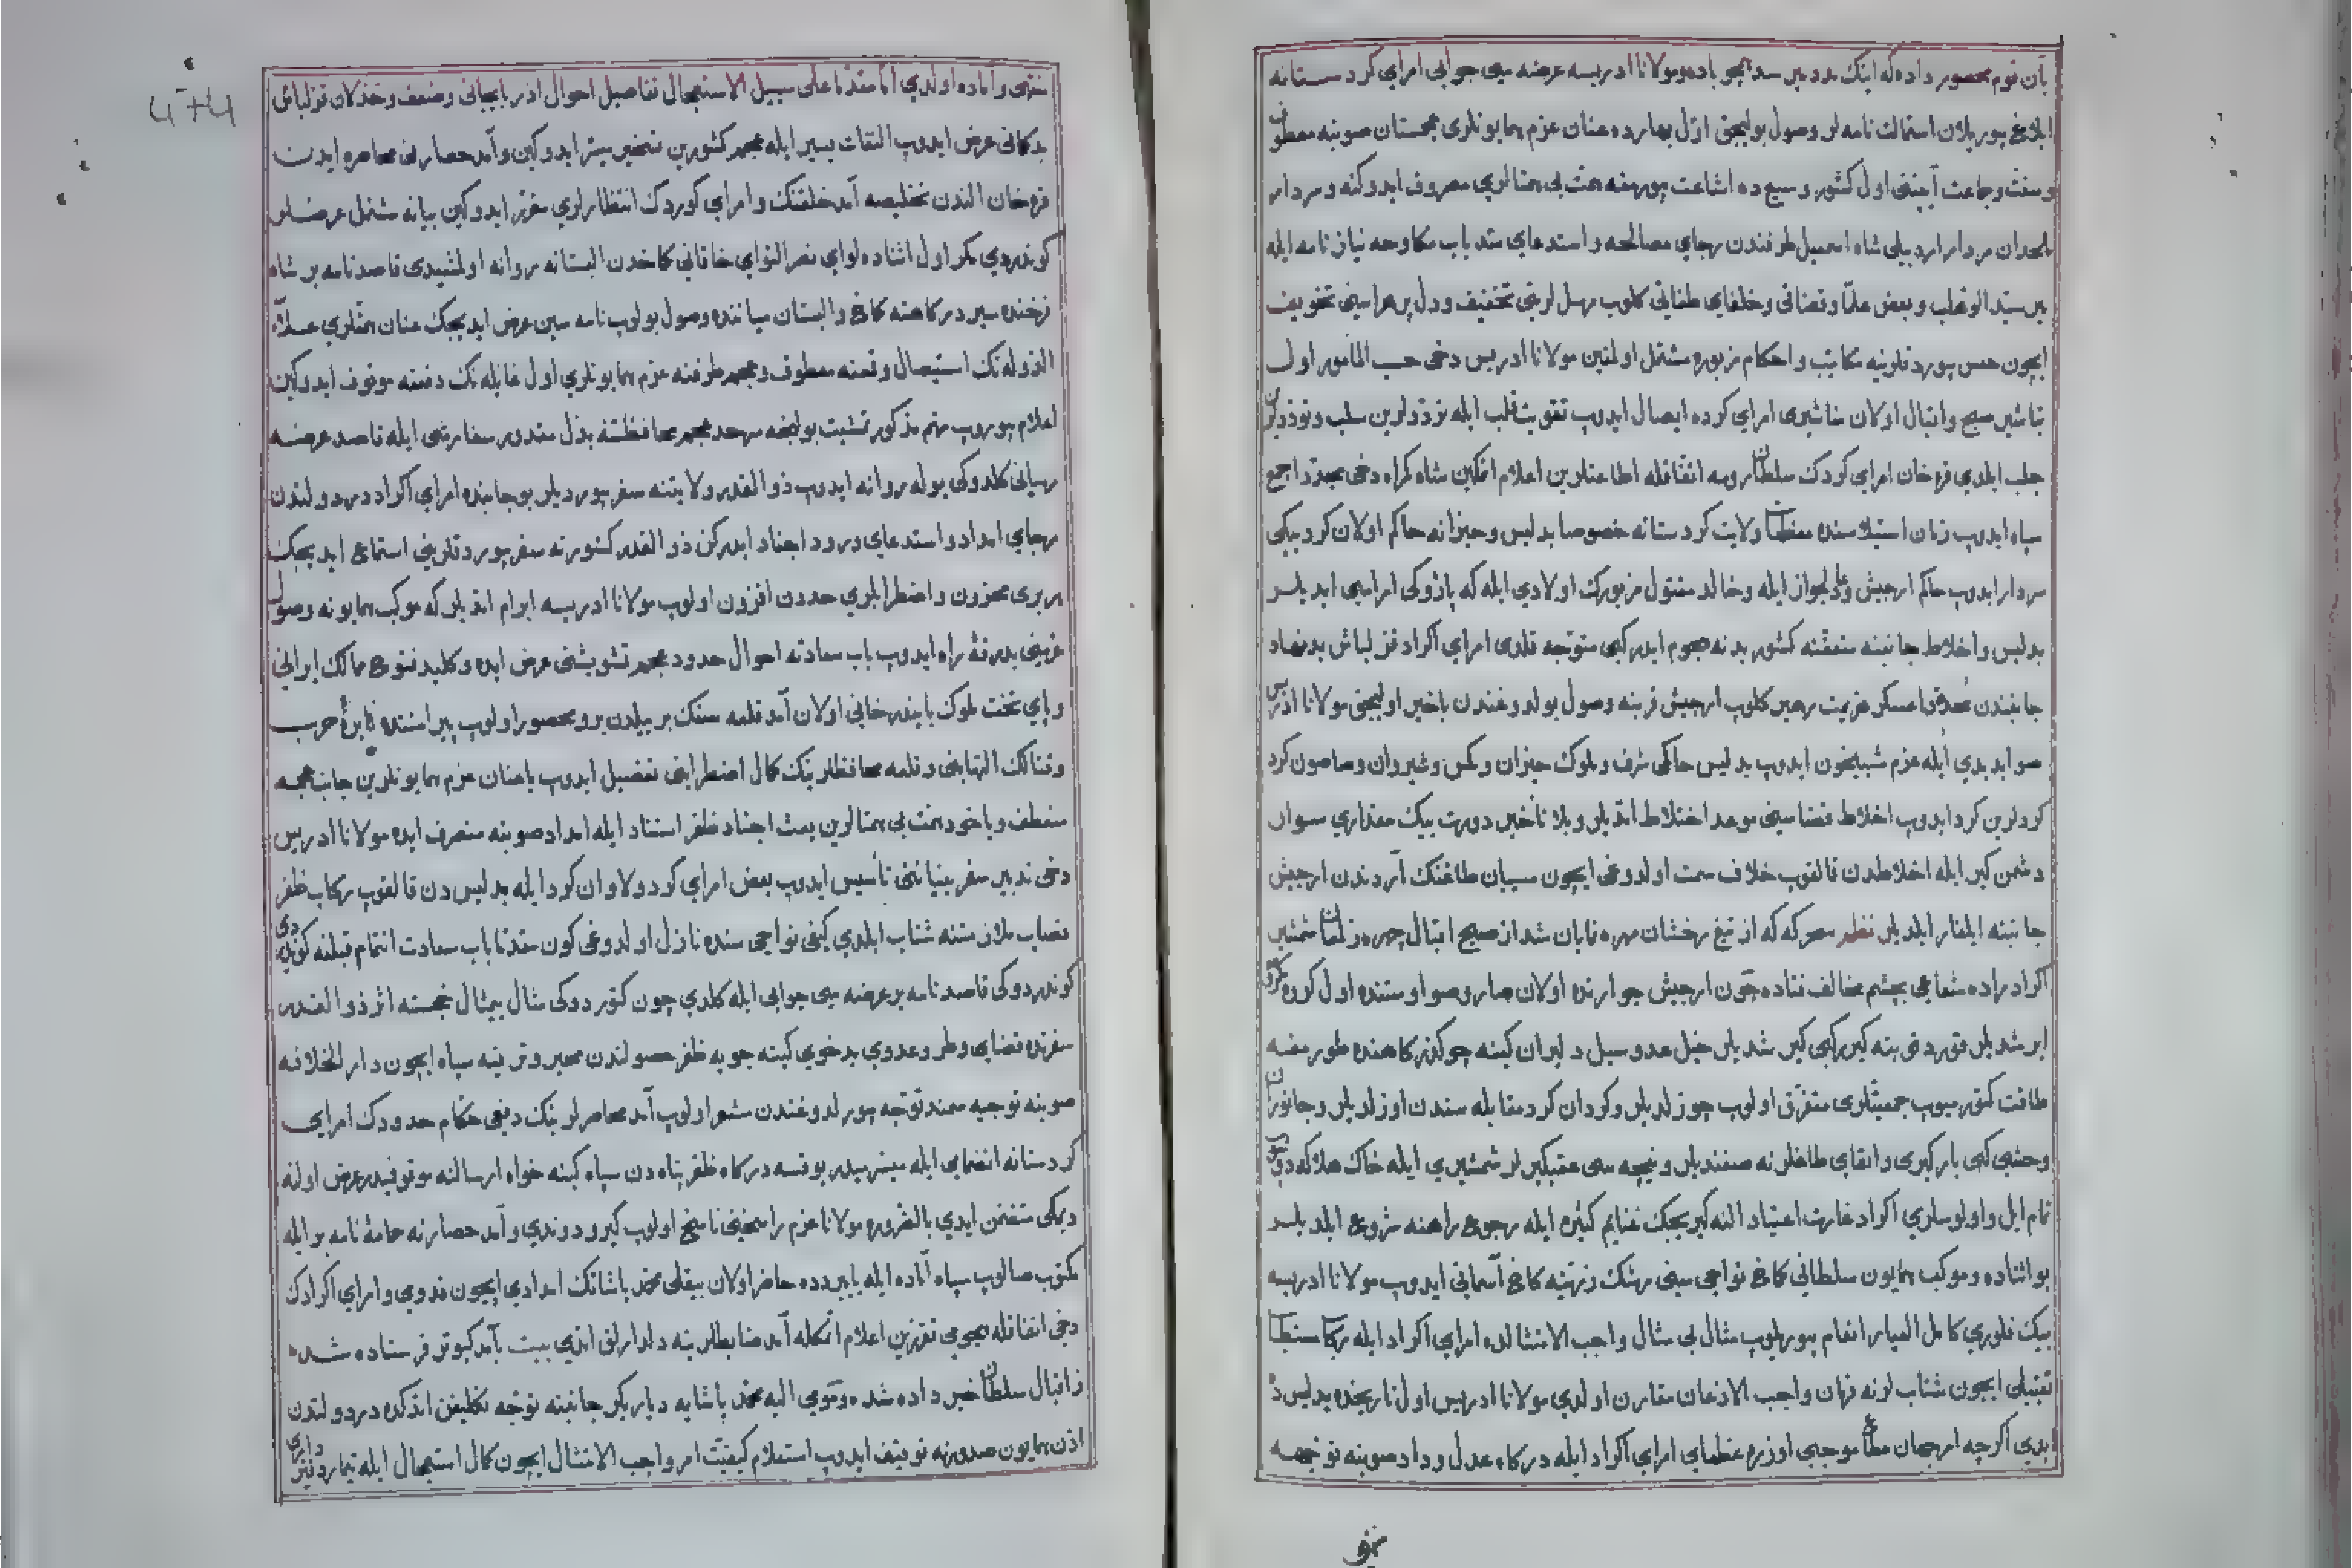 بآن قوم محصور داده که اینک مدد میرسد ایچو باده مولانا ادریسه عرضه سی جوابی امرای کردستانه
ابلاغ بیوریلان استمالت نامه لر وصول بولیجق اول بهارده عنان عزم همایونلری عجمستان صوبنه معطوف
و سنت و جماعت آیینی اول کشور وسیع ده اشاعت بیورمغه همت بی همتالری مصروف ایدوکنه و سردار
ملحدان مردار اردبیلی شاه اسمعیل طرفندن رجای مصالحه و استدعای سد باب مکاوحه نیازنامه ایله
میر سید الوهاب و بعض علما و قضاتی و خلفای کلوب
ایچون حبس بیوردقلرینه مکاتیب و احکام مزبوره مشتمل اولمغین مولانا ادریس دخی حسب المأمور اول
تباشیر صبح و اقبال اولان مناشیری امرای کرده ایصال ایدوب تقویت قلب ایله ترددلرین سلب
جلب ایلدی قره خان امرای کردک سلطان رومه اتفاقله اطاعتلرین اعلام اتمکین شاه کمراه دخی جمع
سپاه ایدوب زمان استیلاسنده ولایت کردستانه خصوصا بدلیس و حیزانه حاکم اولان کرد بیکی
سردار ایدوب حاکم ارجیش و عادلجواز ایله و خالد مقتول مزبورک اولادی ایله که پازوکی امراسی ایدیلر
بدلیس و اخلاط جانبنه کشور بدنه هجوم ایدر کبی متوجه قلدی امرای اکراد قزلباش بدنهاد
جانبندن عسکر عزیمت رهبر کلوب ارجیش قربنه وصول بولدوغندن باخبر اولیجق مولانا ادریس
صوابدیدی ایله عزم شبیخون ایدوب بدلیس حاکمی شرف و ملوک حیزان و مکس و شیروان و صاصون کرد
کردلرین کرد ایدوب اخلاط قضاسنی موعد اختلاط اتدیلر و بلا تأخیر دورت بیک مقداری سوار
دشمن کیر ایله اخلاطدن قالقوب خلاف سمت اولدوغی ایچون سیپان طاغنک آردندن ارجیش
جانبنه ایلغار ایلدیلر نظم معرکه که از تیغ رخشان مهره تابان شد از صبح اقبال چهره زلمعات شمشیر
اکراد راده شعاعی بچشم مخالف فتاده چون ارجیش جوارنده اولان صارو صو اوستنده اول کروه
خیل عدو سیل دلیران کینه جو کذرکاهنده طورمغه
طاقت کتورمیوب جمعیتلری متفرق اولوب چوزلدیلر و کردان کرد مقابله سندن اوزلدیلر و جانوران
وحشی کبی بارکیری و اثقالی طاغلرنه صغندیلر و نیجه سی عقبکیرلر شمشیری ایله خاک هلاکه دوشوب
تمام ایل و اولوسلری اکراد غارت اعتیاد النه کیریجک غنایم کثیره ایله رجوع راهنه شروع ایلدیلر
بو اثناده موکب همایون سلطانی کماخ نواحی سنی رشک نزهتکه کاخ آسمانی ایدوب مولانا ادریسه
بیک فلوری کامل العیار انعام بیوریلوب مثال بی مثال واجب الامتثالده امرای اکراد ایله رکاب
تقبیلی ایچون شتاب لرنه فرمان واجب الاذعان مقارن اولدی مولانا ادریس اول تاریخده بدلیس ده
ایدی اکرچه ارجمان مطاع موجبی اوزره عظمای امرای اکراد ایله درکاه عدل و داد صوبنه توجهه
متهیی و آماده اولدی اما مقدما علی سبیل الاستعجال تفاصیل احوال آذربایجانی و ضعف و خذلان قزلباش
بدکانی عرض ایدوب التفات یسیر ایله عجم کشورین تسخیر میسر ایدوکین و آمد حصارنی محاصره ایدن
قره خان الندن تخلیصه آمد خلقنک و امرای کوردک انتظارلری مقرر ایدوکین بیانه مشتمل عرضلر
کوندردی مکر اول اثناده لوای نصر التوای خاقانی کماخدن البستانه روانه اولمشیدی قاصد نامه بر شاه
فرخنده سیر درکاهنه کماخ و البستان میاننده وصول بولوب نامه سین عرض ایدیجک عنان همتلری علاء
الدوله نک استیصال و قمعنه معطوف و عجم طرفنه عزم همایونلری اول غایله نک دفعنه موقوف ایدوکین
اعلام بیوروب مهم مذکور تمشیت بولنجه سرحد عجم محافظتنه بذل مقدور سفارشی ایله قاصد عرضه
رسانی کلدوکی یوله روانه ایدوب ذوالقدر ولایتنه سفر بیوردیلر بو جانبده امرای اکراد درد دولتدن
رجای امداد و استدعای ورود اجناد ایدرکن ذوالقدر کشورنه سفر بیوردقلرینی استماع ایدیجک
هر بری محزون و اضطرابلری حددن افزون اولوب مولانا ادریسه ابرام اتدیلر که موکب همایونه وصول
عزمنی بدرقهٔ راه ایدوب باب سعادته احوال حدود عجم تشویشنی عرض ایده و کلید فتوح ممالک ایرانی
و پای تخت ملوک بایندرخانی اولان آمد قلعه سنک بر ییلدن برو محصور اولوب پیرامننده نایرهٔ حرب
و قتالک التهابنی و قلعه محافظلرینک کمال اضطرابنی تفصیل ایدوب یا عنان عزم همایونلرین جانب عجمه
منعطف و یا خود همت بی همتالرین بعث اجناد ظفر استناد ایله امداد صوبنه منصرف ایده مولانا ادریس
دخی تدبیر سفر بنیاننی تأسیس ایدوب بعض امرای کرد و لاوان کرد ایله بدلیس دن قالقوب رکاب ظفر
نصاب ملازمتنه شتاب ایلدی کیفی نواحی سنده نازل اولدوغی کون مقدما باب سعادت انتمام قبلنه
کوندردوکی قاصد نامه بر عرضه سی جوابی ایله کلدی چون کتوردوکی مثال بیمثال خجسته اثر ذوالقدر
سفرنده قضای وطر و عدوی بدخوی کینه جویه ظفر حصولندن مخبر و سپاه ایچون دار الخلافه
صوبنه توجیه سمند توجه بیورلدوغندن مشعر اولوب آمد محاصرلرینک دفعی حکام حدودک امرای
کردستانه انضمامی ایله میسر میدر یوقسه درکاه ظفر پناه دن سپاه کینه خواه ارسالنه موقوفیدر عرض اولنه
دیمکی متضمن ایدی بالضروره مولانا عزم راسخنی ناسخ اولوب کیرو دوندی و آمد حصارنه حمامهٔ نامه بر ایله
مکتوب صالوب سپاه آماده ایله بایبردده حاضر اولان بیقلی محمد پاشانک امدادی ایچون قدومی و امرای اکرادک
دخی اتفاقله هجومی تقررین اعلام اتمکله آمد ضابطلرینه دلدارلق اتدی بیت بآمد کبوتر فرستاده شده
ز اقبال سلطان خبر داده شده و مومی الیه محمد پاشایه دیاربکر جانبنه توجه تکلیفن اتدکده در دولتدن
اذن همایون صدورنه توقیف ایدوب استعلام کیفیت امر واجب الامتثال ایچون کمال استعجال ایله تیمار دفترداری